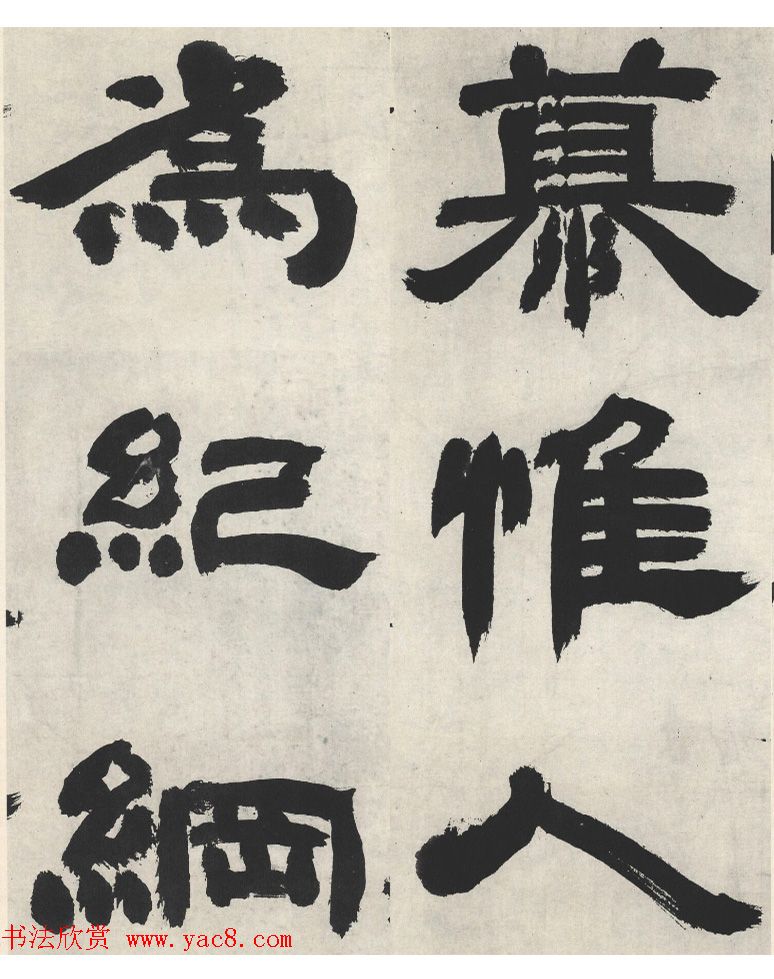 慕惟人
為紀綱
书法欣赏 www.yac8.com